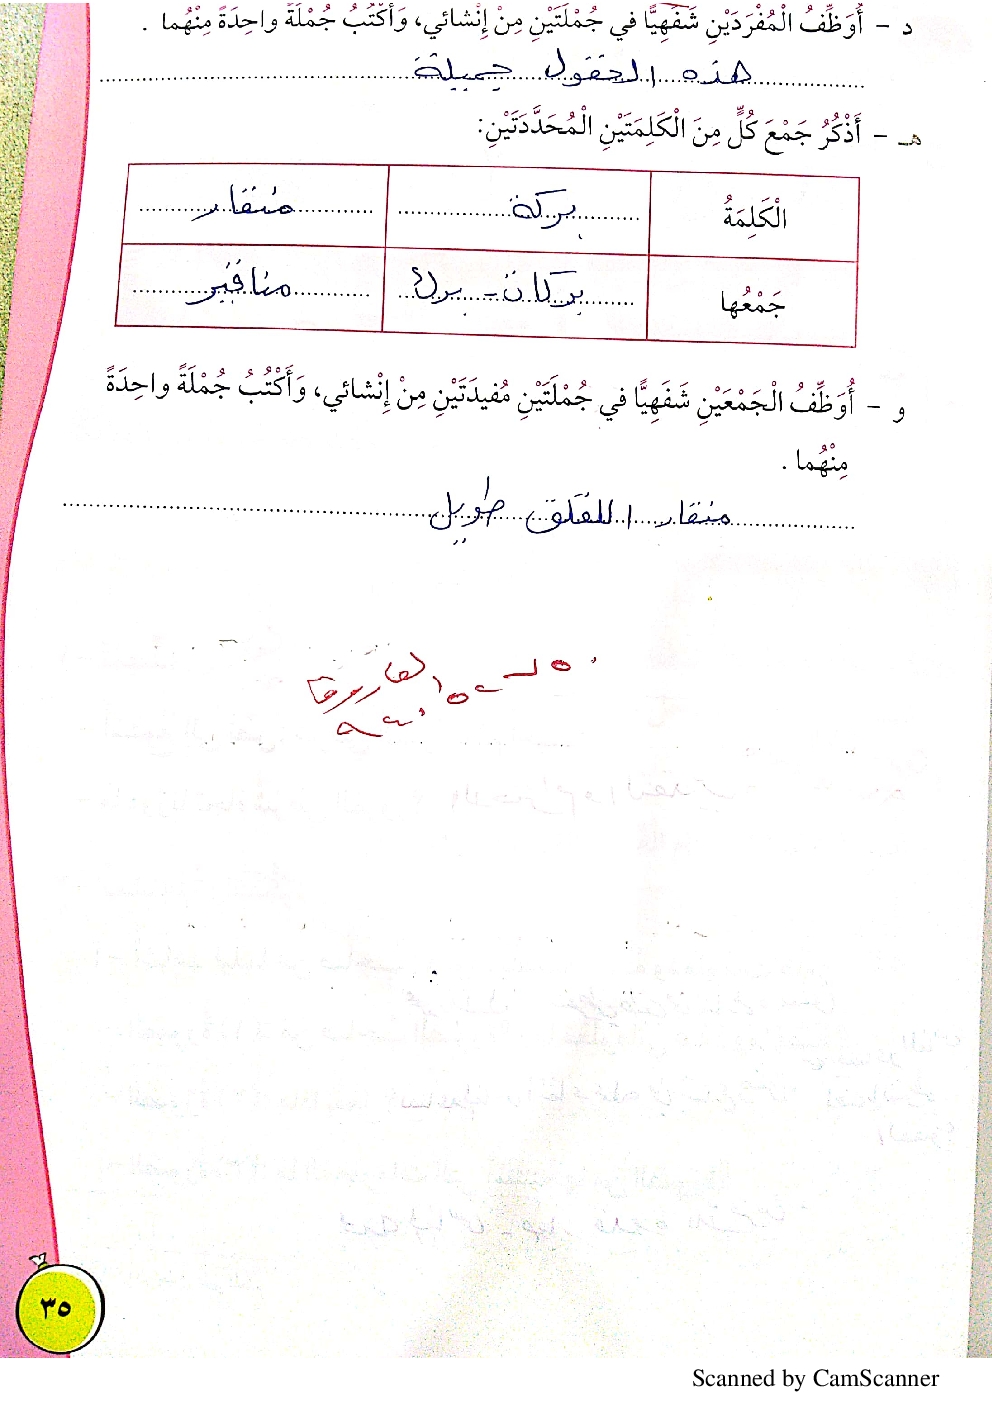 د - أُوَظِّفُ الْمُفْرَدَيْنِ شَفَهِيًّا في جُمْلَتَيْنِ مِنْ إِنْشائي، وَأَكْتُبُ جُمْلَةً واحِدَةً مِنْهُما .
هذه الحقول جميلة
هـ - أَذْكُرُ جَمْعَ كُلٍّ مِنَ الْكَلِمَتَيْنِ الْمُحَدَّدَتَيْنِ:
الْكَلِمَةُ بركة منقار
جَمْعُها بركات - برك مناقير
و - أُوَظِّفُ الْجَمْعَيْنِ شَفَهِيًّا في جُمْلَتَيْنِ مُفيدَتَيْنِ مِنْ إِنْشائي، وَأَكْتُبُ جُمْلَةً واحِدَةً
مِنْهُما .
منقار اللقلق طويل
٣٥
Scanned by CamScanner